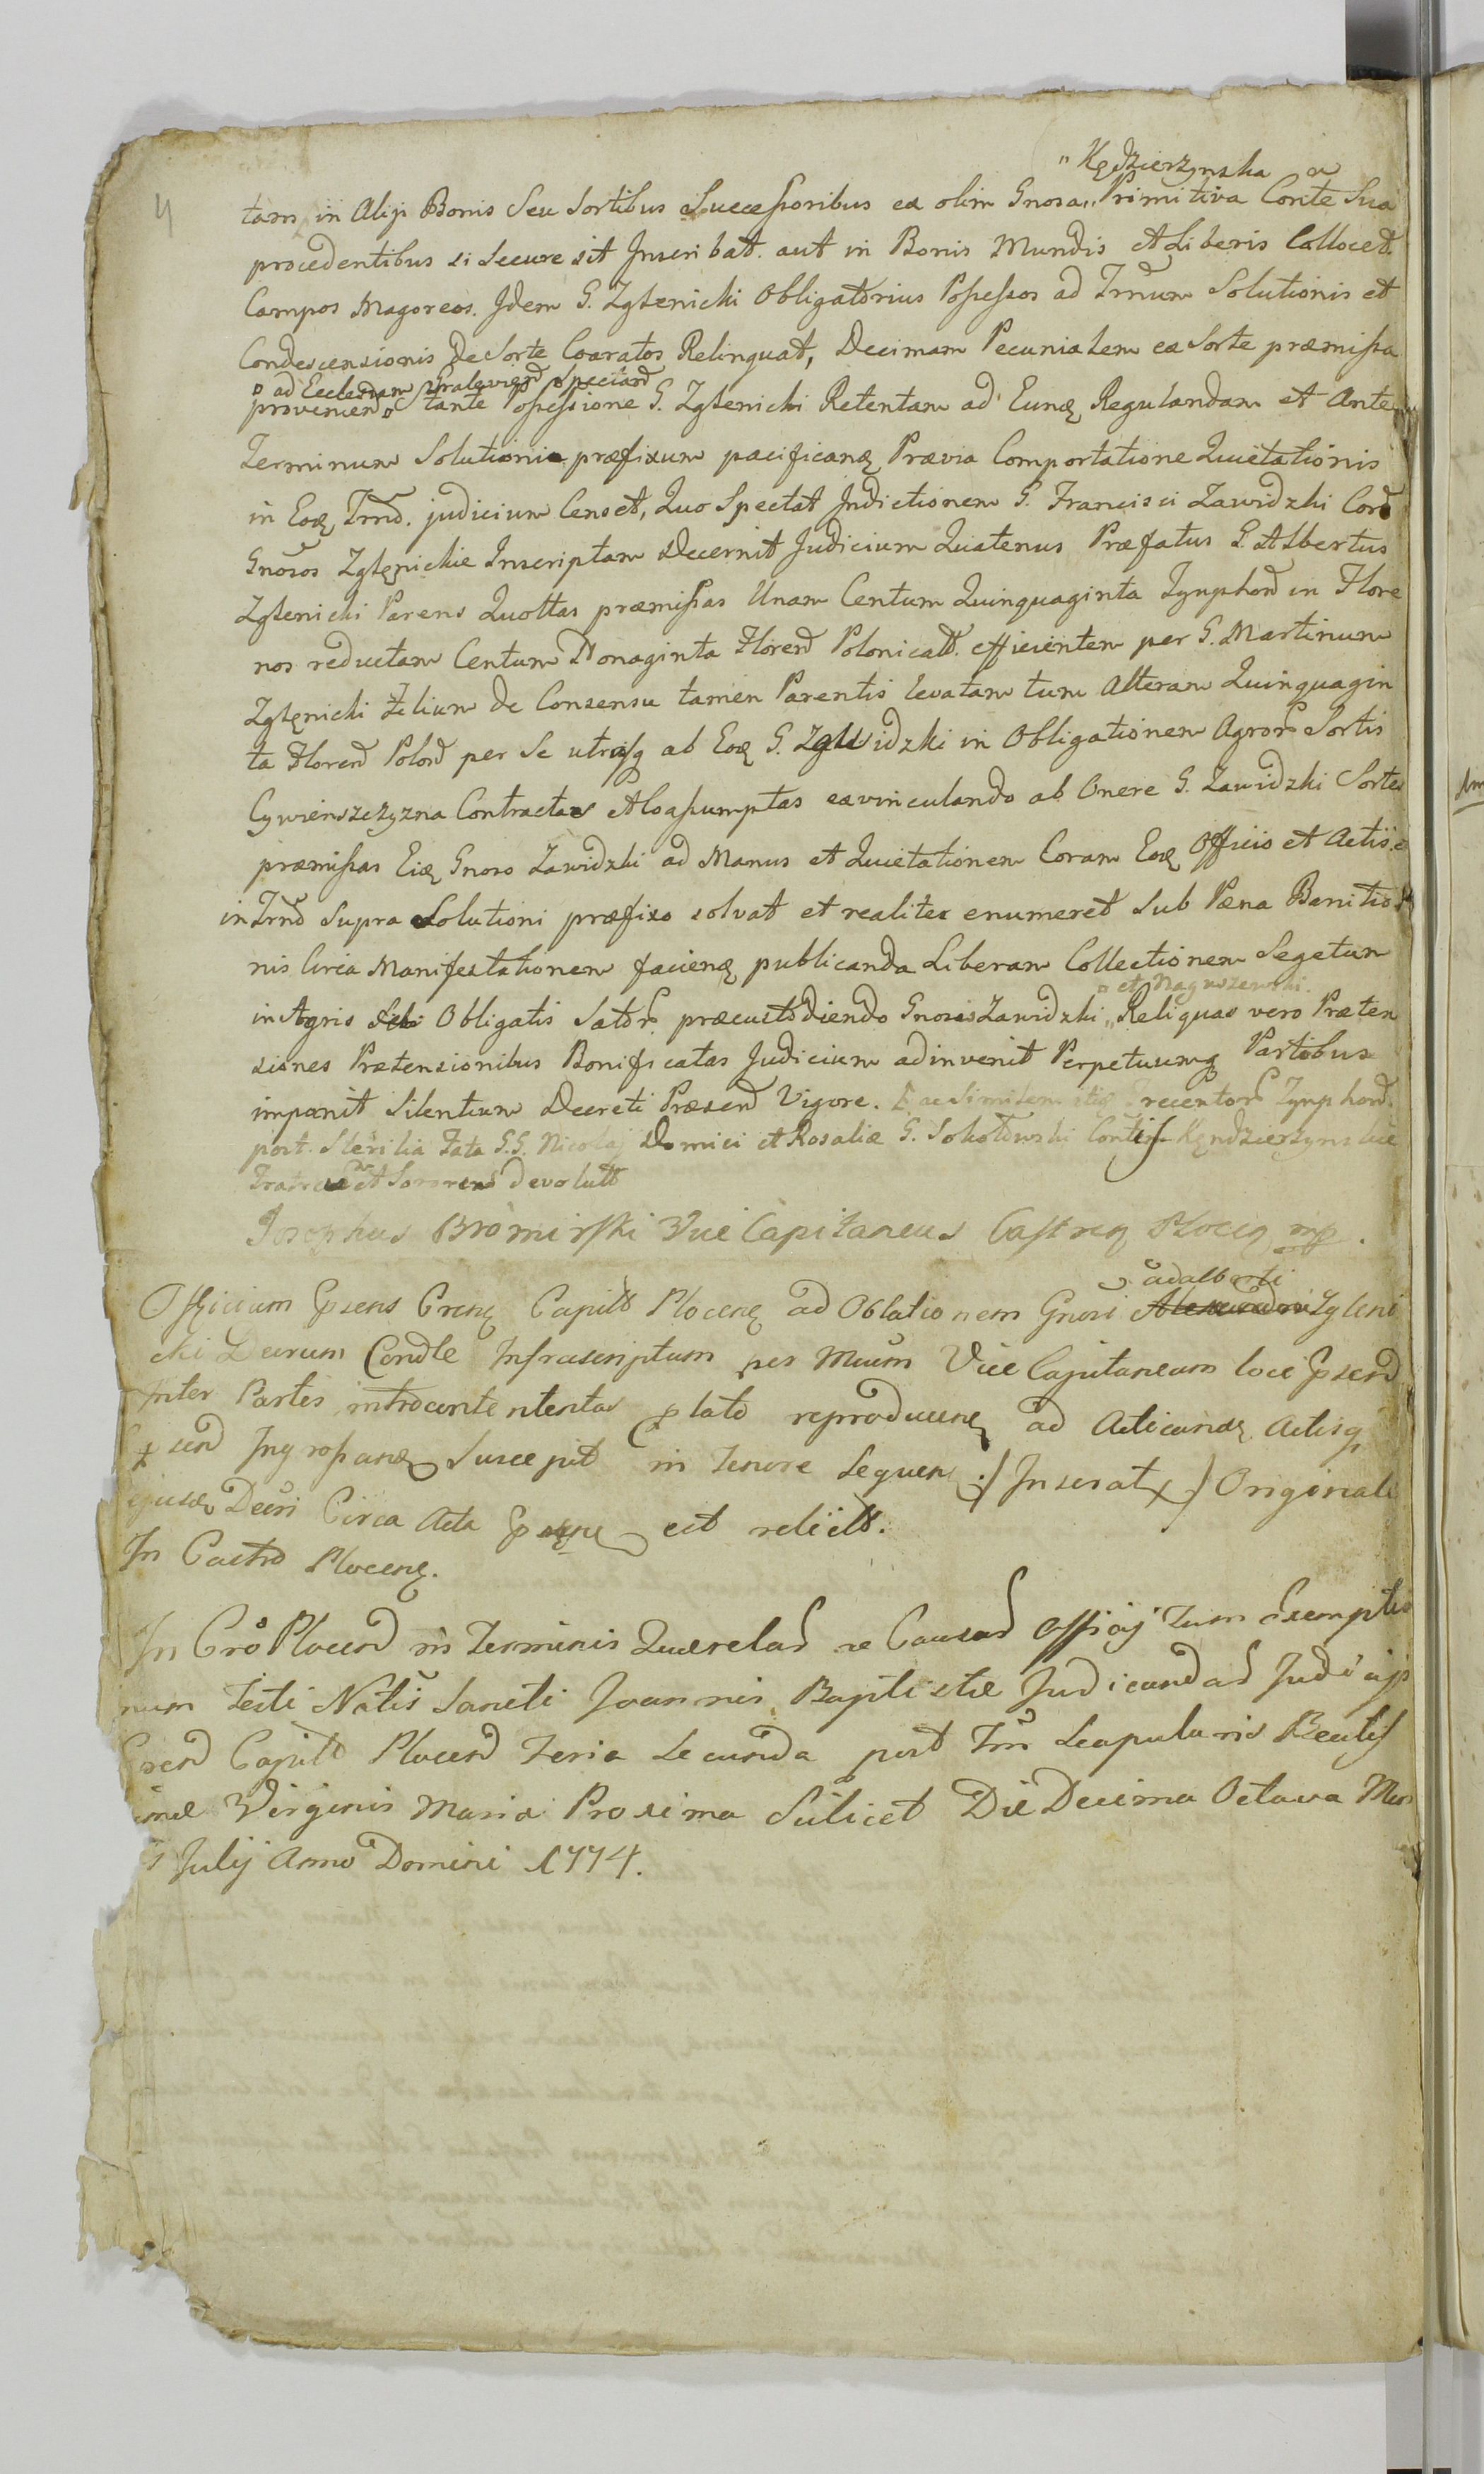 4
" Kędzierzynska
tam in Alijs Bonis Seu Sortibus Successoribus ex olim Gnosa „ Primitiva Conte Sua
procedentibus si Secure sit Inscribat. aut in Bonis Mundis et Liberis Collocet.
Campos Magoreos. Idem G. Zglenicki Obligatorius Possessor ad Trnum Solutionis et
Condescensionis de Sorte Coaratos Relinquat, Decimam Pecuniatem ex Sorte præmissa
ad Ecclesiam Gralewiend Spectand
proveniend tante Possessione G. Zglenicki Retentam ad Eunq Regulandam et Ante
Terminum Solutionis præfixum pacificanq Prævia Comportatione Quietationis
in Eoq Trnd. judicium Censet, Quo Spectat Indictionem G. Francisci Zawidzki Cord
Gnosos Zglenickie Inscriptam Decernit Judicium Quatenus Præfatus G. Albertus
Zglenicki Parens Quottas præmissas Unam Centum Quinquaginta Tynphord in Flore
nos reductam Centum Nonaginta Florend Polonicatt. efficientem per G. Martinum
Zglęnicki Filium de Consensu tamen Parentis levatam tum Alteram Quinquagin
ta Florend Polod per Se utrasq ab Eoq G. Zawidzki in Obligationem Agror Sortis
Cywienszczyzna Contractas Aloassumptas exvinculando ab Onere G. Zawidzki Sortes
præmissas Eiq Gnoso Zawidzki ad Manus et Quietationem Coram Eoq Officio et Actis
in Trnd Supra Solutioni præfixo solvat et realiter enumeret Sub Pæna Banitio
nis Circa Manifestationem facienq publicanda Liberam Collectionem Segetum
" et Naguszewski.
in Agris Sibi Obligatis Sator præcustodiendo Gnosis Zawidzki „ Reliquas vero Præten
siones Prætensionibus Bonificatas Judicium adinvenit Perpetuumq Partibus
imponit Silentium Decreti Præsend Vigore. recentor Tynphord.
post Sterilia Fata G.G. Nicolaj Domici et Rosaliæ G. Sokołowski Contis Kędzierzynskie
Fratres et Sororem devolutt
Josephus Bromirski ViceCapitaneus Castren Plocen mp.
Officium Præsens Crenq Capitt Plocenq ad Oblationem Gnosi Adalberti Zgleni
cki Decrum Condle Infrascriptum per Mcum Vice Capitaneum loci præsend
Inter Partes introcontentas plato reproducenq ad Acticandq Actisq
præsend Ingrossanq Suscepit in Tenore Sequen ./ Inserat / Originale
ejusdq Decri Circa Acta præsenq est relictt.
In Castro Plocenq.
In Cro Plocend in Terminis Querelard ac Causard Officij tum Exemptio
num Festi Natis Sancti Joannis Baptistæ Judicandar Judicijs
Crend Capitt Plocend Feria Secunda post Fm Scapularis Beatis
simæ Virginis Mariæ Proxima Scilicet Die Decima Octava Men
s Julij Anno Domini 1774.